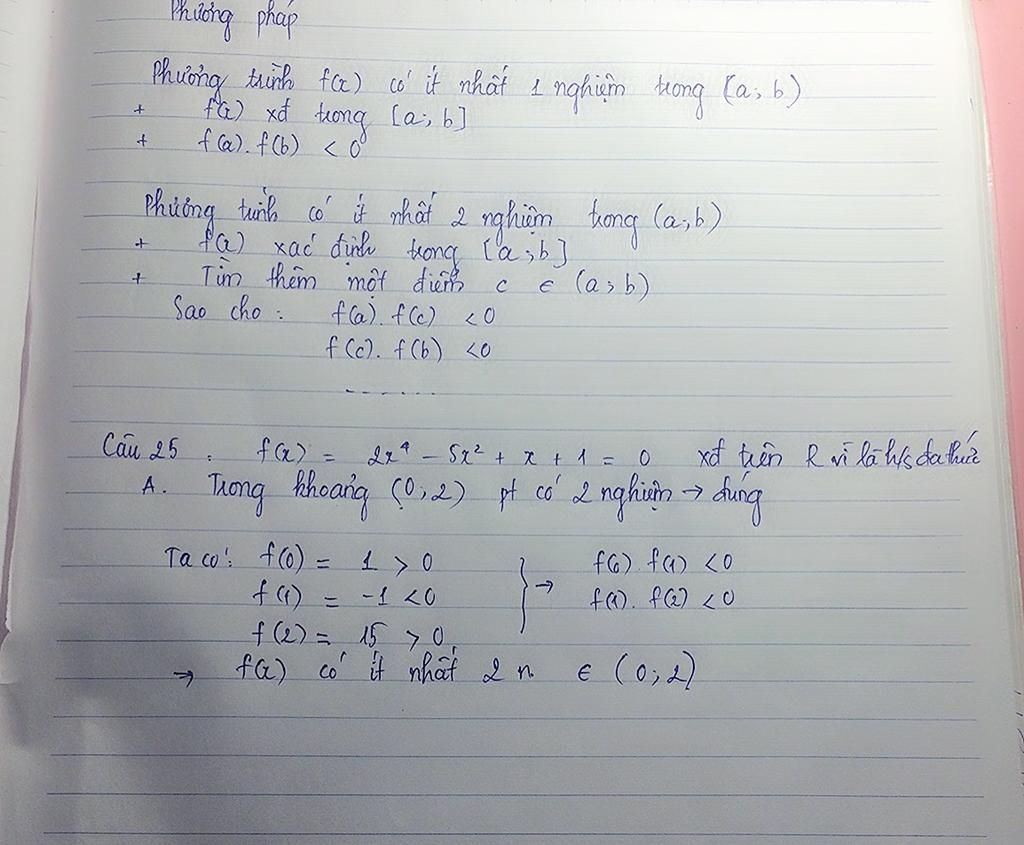 Phương pháp
Phương trình f(x) có ít nhất 1 nghiệm trong (a; b)
+ f(x) xđ trong [a; b]
+ f(a). f(b) < 0
Phương trình có ít nhất 2 nghiệm trong (a; b)
+ f(x) xác định trong [a; b]
+ Tìm thêm một điểm c ∈ (a; b)
Sao cho: f(a). f(c) < 0
f(c). f(b) < 0
.......
Câu 25: f(x) = 2x⁴ - 5x² + x + 1 = 0 xđ trên R vì là h/s đa thức
A. Trong khoảng (0; 2) pt có 2 nghiệm → đúng
Ta có: f(0) = 1 > 0 } → f(0). f(1) < 0
f(1) = -1 < 0 f(1). f(2) < 0
f(2) = 15 > 0
→ f(x) có ít nhất 2 n ∈ (0; 2)